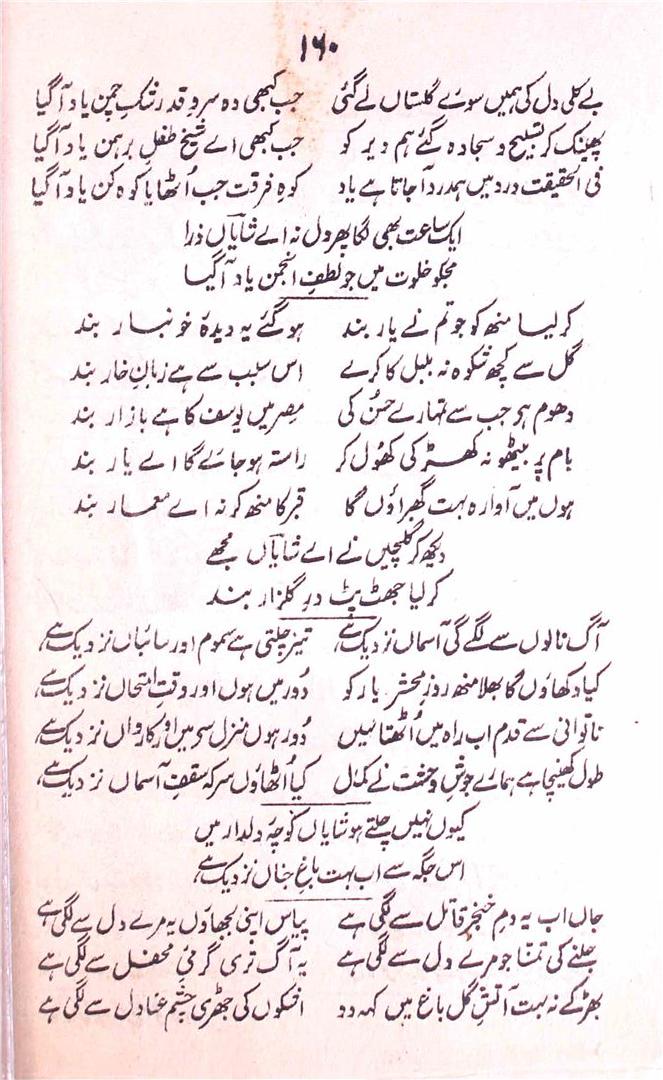 ۱۶۰
بے کلی دل کی ہمیں سوئے گلستاں لے گئی جب کبھی وہ سرو قد رشکِ چمن یاد آ گیا
پھینک کر تسبیح و سجادہ گئے ہم دیر کو جب کبھی اے شیخ طفلِ برہمن یاد آ گیا
فی الحقیقت درد میں ہمدرد آ جاتا ہے یاد کوہِ فرقت جب اُٹھایا کوہ کن یاد آ گیا
ایک ساعت بھی لگا پھر دل نہ اے شایاں ذرا
مجکو خلوت میں جو لطفِ انجمن یاد آ گیا
کر لیا منھ کو جو تم نے یار بند ہو گئے یہ دیدۂ خونبار بند
گل سے کچھ شکوہ نہ بلبل کا کرے اس سبب سے ہے زبانِ خار بند
دھوم ہو جب سے تمہارے حسُن کی مصر میں یوسف کا ہے بازار بند
بام پر بیٹھو نہ کھڑکی کھول کر راستہ ہو جائے گا اے یار بند
ہوں میں آوارہ بہت گھبراؤں گا قبر کا منھ کر نہ اے معمار بند
دیکھ کر گلچیں نے اے شایاں مجھے
کر لیا جھٹ پٹ درِ گلزار بند
آگ نالوں سے لگے گی آسماں نزدیک ہے تیز چلتی ہے سموم اور سائباں نزدیک ہے
کیا دکھاؤں گا بھلا منھ روزِ محشر یار کو دُور میں ہوں اور وقتِ امتحاں نزدیک ہے
ناتوانی سے قدم اب راہ میں اُٹھتا نہیں دُور ہوں منزل سے میں اور کارواں نزدیک ہے
طول کھینچا ہے ہمارے جوشِ وحشت نے کیا اُٹھاؤں سر کہ سقفِ آسماں نزدیک ہے
کیوں نہیں چلتے ہو شایاں کوچۂ دلدار میں
اس جگہ سے اب بہت باغِ جناں نزدیک ہے
جاں اب یہ دمِ خنجرِ قاتل سے لگی ہے پیاس اپنی بجھاؤں یہ مرے دل سے لگی ہے
جلنے کی تمنا جو مرے دل سے لگی ہے یہ آگ تری گرمیِ محفل سے لگی ہے
بھڑکے نہ بہت آتشِ گل باغ میں کہہ دو اشکوں کی جھڑی چشمِ عنادل سے لگی ہے